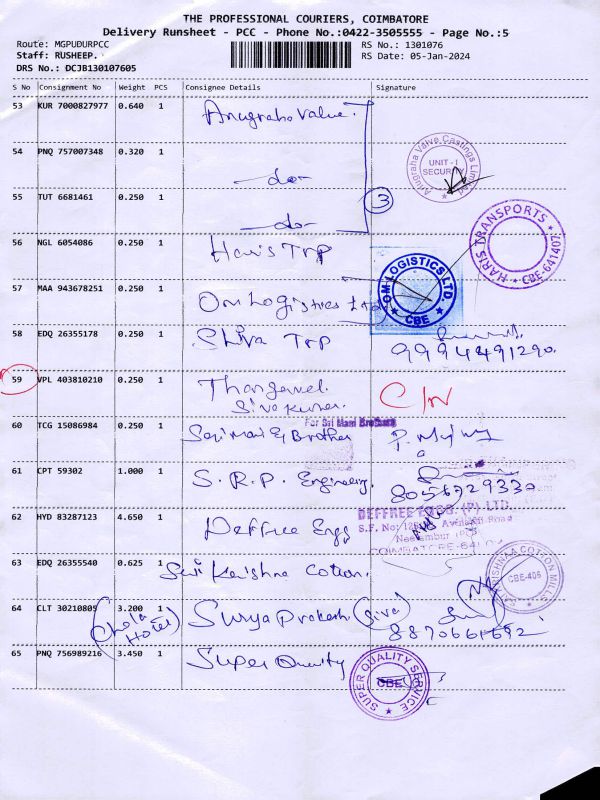 THE PROFESSIONAL COURIERS, COIMBATORE
Delivery Runsheet - PCC - Phone No.:0422-3505555 - Page No.:5
Route: MGPUDURPCC
RS No.: 1301076
Staff: RUSHEEP.
RS Date: 05-Jan-2024
DRS No.: DCJB130107605
S No Consignment No Weight PCS Consignee Details Signature
53 KUR 7000827977 0.640 1 Anugraha Value.
54 PNQ 757007348 0.320 1 -do-
Anugraha Valve Castings Limited
UNIT - I
SECURITY
55 TUT 6681461 0.250 1 -do-
3
56 NGL 6054086 0.250 1 Haris Trp
HARIS TRANSPORTS
CBE-641407
57 MAA 943678251 0.250 1 Om Logistics Ltd
OM LOGISTICS LTD.
CBE
58 EDQ 26355178 0.250 1 Shiva Trp
9994491290.
59 VPL 403810210 0.250 1 Thangavel
Sivakumar
C/N
60 TCG 15086984 0.250 1 Sri Mani & Brother
For Sri Mani Brothers
61 CPT 59302 1.000 1 S.R.P. Engineering
8056729330
62 HYD 83287123 4.650 1 Deffree Engg
DEFFREE ENGG. (P) LTD.
S.F. No: Avinashi Road
Neelambur
COIMBATORE-641
63 EDQ 26355540 0.625 1 Sri Krishna Cotton.
KRISHNAA COTTON MILLS
CBE-405
64 CLT 30210805 3.200 1 Surya Prakash (Siva)
(Chola Hotel)
8870661692
65 PNQ 756989216 3.450 1 Super Quality
SUPER QUALITY SERVICE
CBE